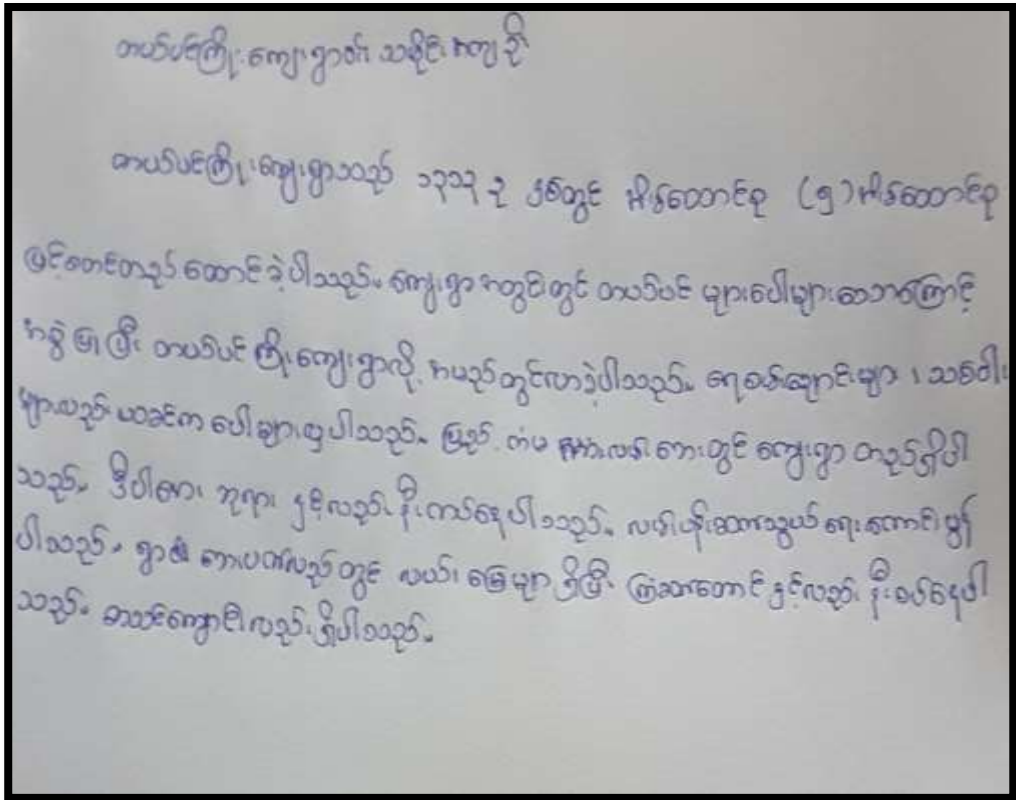 တယ်ပင်ကြိုးကျေးရွာ၏ သမိုင်းအကျဉ်း
တယ်ပင်ကြိုးကျေးရွာသည် ၁၃၁၃ ခု နှစ်တွင် အိမ်ထောင်စု (၅) အိမ်ထောင်စု
ဖြင့်စတင်တည်ထောင်ခဲ့ပါသည်။ ကျေးရွာအတွင်းတွင် တယ်ပင် များပေါများသောကြောင့်
အစွဲပြုပြီး တယ်ပင်ကြိုးကျေးရွာလို့ အမည်တွင်လာခဲ့ပါသည်။ ရေ ချောင်းများ ၊ သစ်ဝါး
များလည်း ယခင်က ပေါများမှုရှိပါသည်။ ပြည် လမ်းဘေးတွင် ကျေးရွာ တည်ရှိပါ
သည်။ ဒီပါ ဘုရား နှင့်လည်း နီးကပ်နေပါသည်။ လမ်းပန်းဆက်သွယ်ရေးကောင်းမွန်
ပါသည်။ ရွာ ဘေးပတ်လည်တွင် လယ်မြေများ ရှိပြီး ကြံ တောင် နှင့်လည်း နီးစပ်နေပါ
သည်။ စာသင်ကျောင်းလည်းရှိပါသည်။